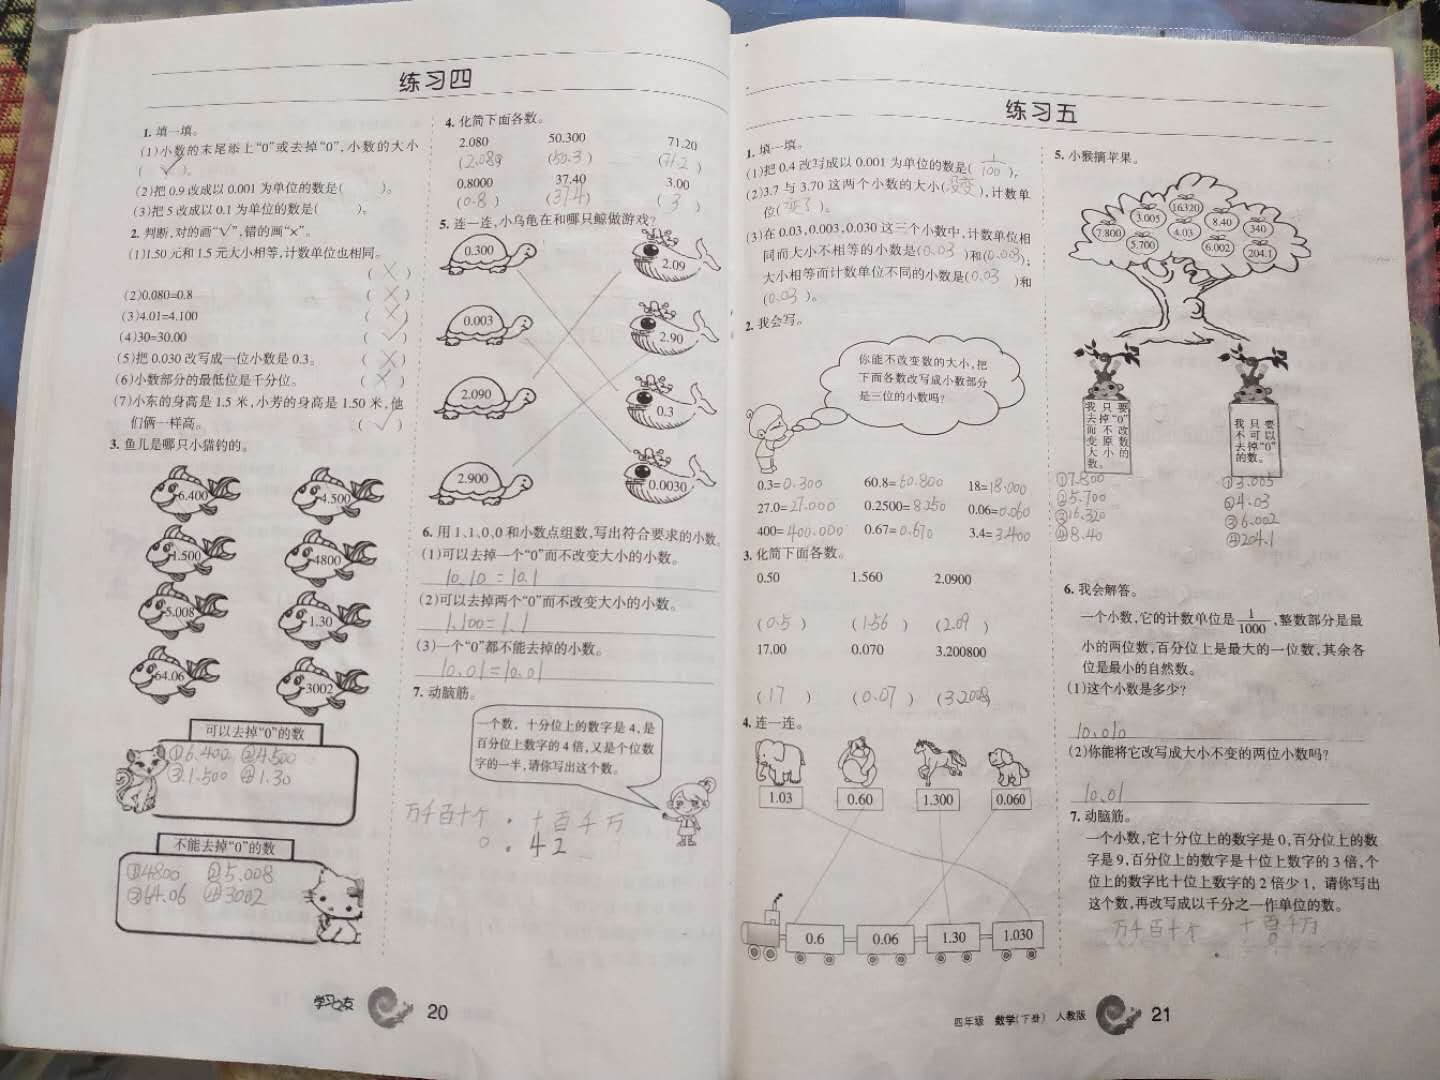 练习四
1. 填一填。
(1)小数的末尾添上“0”或去掉“0”,小数的大小
( ✓ )。
(2)把 0.9 改成以 0.001 为单位的数是( )。
(3)把 5 改成以 0.1 为单位的数是( )。
2. 判断,对的画“√”,错的画“×”。
(1)1.50 元和 1.5 元大小相等,计数单位也相同。
( × )
(2)0.080=0.8 ( × )
(3)4.01=4.100 ( × )
(4)30=30.00 ( ✓ )
(5)把 0.030 改写成一位小数是 0.3。 ( × )
(6)小数部分的最低位是千分位。 ( × )
(7)小东的身高是 1.5 米,小芳的身高是 1.50 米,他
们俩一样高。 ( ✓ )
3. 鱼儿是哪只小猫钓的。
6.400 4.500
1.500 4800
5.008 1.30
64.06 3002
可以去掉“0”的数
①6.400 ②4.500
③1.500 ④1.30
不能去掉“0”的数
①4800 ②5.008
③64.06 ④3002
4. 化简下面各数。
2.080 50.300 71.20
(50.3) (71.2)
0.8000 37.40 3.00
(0.8) (37.4) (3)
5. 连一连,小乌龟在和哪只鲸做游戏?
0.300 2.09
0.003 2.90
2.090 0.3
2.900 0.0030
6. 用 1、1、0、0 和小数点组数,写出符合要求的小数。
(1)可以去掉一个“0”而不改变大小的小数。
10.10=10.1
(2)可以去掉两个“0”而不改变大小的小数。
1.100=1.1
(3)一个“0”都不能去掉的小数。
10.01=10.01
7. 动脑筋。
一个数, 十分位上的数字是 4,是
百分位上数字的 4 倍,又是个位数
字的一半,请你写出这个数。
万千百十个 . 十百千万
0 . 4 2
学习之友 20
练习五
1. 填一填。
(1)把 0.4 改写成以 0.001 为单位的数是( 1/100 )。
(2)3.7 与 3.70 这两个小数的大小(没变),计数单
位(变了)。
(3)在 0.03、0.003、0.030 这三个小数中,计数单位相
同而大小不相等的小数是(0.03)和(0.003);
大小相等而计数单位不同的小数是(0.03)和
(0.03)。
2. 我会写。
你能不改变数的大小,把
下面各数改写成小数部分
是三位的小数吗?
0.3=0.300 60.8=60.800 18=18.000
27.0=27.000 0.2500=8.250 0.06=0.060
400=400.000 0.67=0.670 3.4=3.400
3. 化简下面各数。
0.50 1.560 2.0900
(0.5) (1.56) (2.09)
17.00 0.070 3.200800
(17) (0.07) (3.2008)
4. 连一连。
1.03 0.60 1.300 0.060
0.6 0.06 1.30 1.030
5. 小猴摘苹果。
3.005 16320 8.40
7.800 4.03 340
5.700 6.002 204.1
我只要
去掉“0”
而不改
变原数
大小的
数。
我只要
不可以
去掉“0”
的数。
①7.800 ①3.005
②5.700 ②4.03
③16.320 ③6.002
④8.40 ④204.1
6. 我会解答。
一个小数,它的计数单位是 1/1000 ,整数部分是最
小的两位数,百分位上是最大的一位数,其余各
位是最小的自然数。
(1)这个小数是多少?
10.010
(2)你能将它改写成大小不变的两位小数吗?
10.01
7. 动脑筋。
一个小数,它十分位上的数字是 0,百分位上的数
字是 9,百分位上的数字是十位上数字的 3 倍,个
位上的数字比十位上数字的 2 倍少 1, 请你写出
这个数,再改写成以千分之一作单位的数。
万千百十个 十百千万
0
四年级 数学(下册) 人教版 21